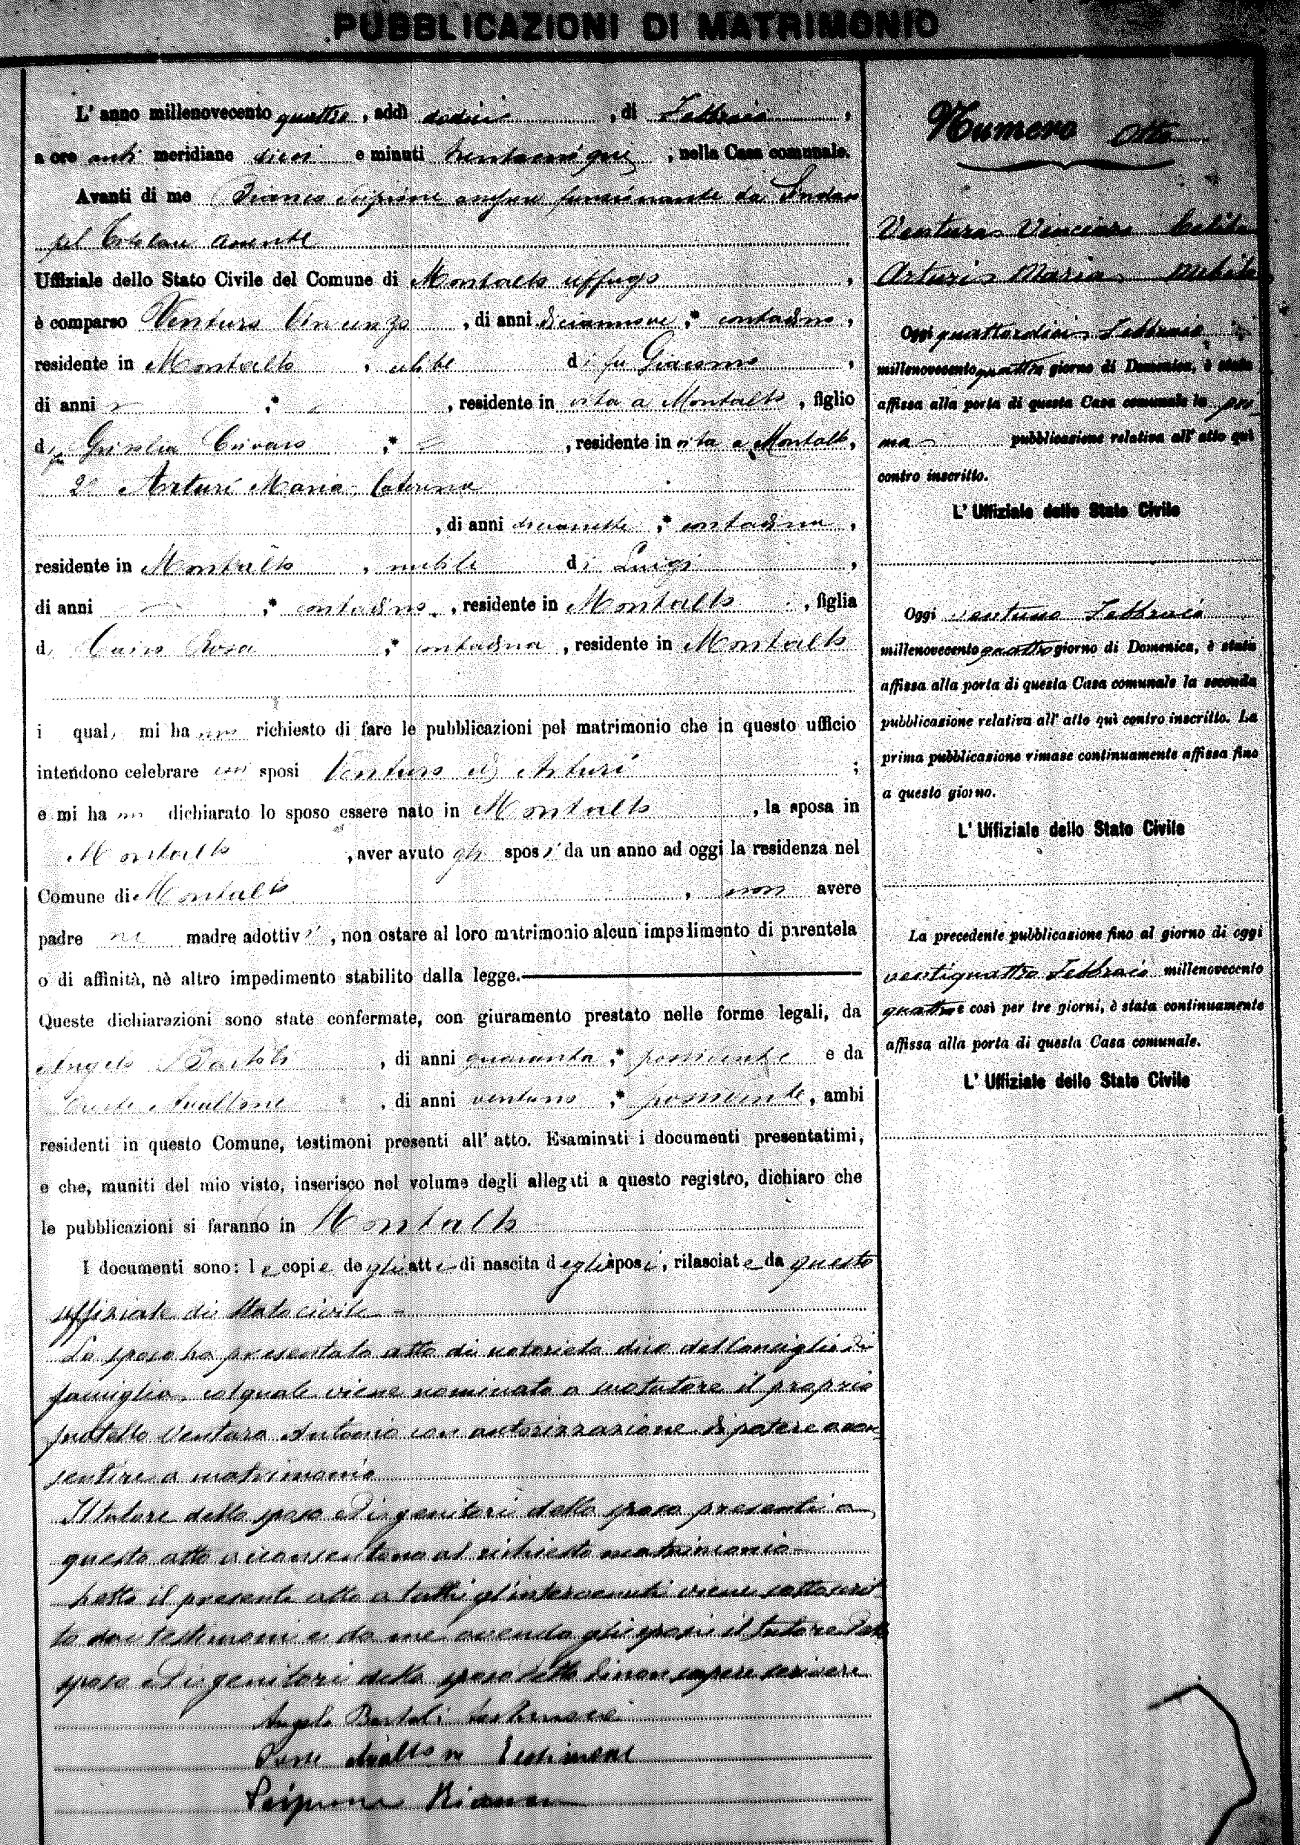 PUBBLICAZIONI DI MATRIMONIO
L' anno millenovecento quattro, addì dodici, di Febbraio,
a ore anti meridiane dieci e minuti trentacinque, nella Casa comunale.
Avanti di me Bianco Scipione assessore funzionante da Sindaco
pel titolare assente
Uffiziale dello Stato Civile del Comune di Montalto Uffugo,
è comparso Ventura Vincenzo, di anni diciannove,* contadino,
residente in Montalto, celibe di fu Giacomo,
di anni ,* , residente in vita a Montalto, figlio
di fu Crivaro ,* , residente in vita a Montalto,
2° Arturi Maria Caterina
, di anni ,* contadina,
residente in Montalto, nubile di Luigi,
di anni ,* contadino, residente in Montalto, figlia
di Rosa ,* contadina, residente in Montalto
i quali mi hanno richiesto di fare le pubblicazioni pel matrimonio che in questo ufficio
intendono celebrare essi sposi Ventura ed Arturi ;
e mi hanno dichiarato lo sposo essere nato in Montalto, la sposa in
Montalto, aver avuto gli sposi da un anno ad oggi la residenza nel
Comune di Montalto, non avere
padre nè madre adottivi, non ostare al loro matrimonio alcun impedimento di parentela
o di affinità, nè altro impedimento stabilito dalla legge.
Queste dichiarazioni sono state confermate, con giuramento prestato nelle forme legali, da
Angelo Bartoli, di anni quaranta,* possidente e da
Oreste Avallone, di anni ventuno,* possidente, ambi
residenti in questo Comune, testimoni presenti all' atto. Esaminati i documenti presentatimi,
e che, muniti del mio visto, inserisco nel volume degli allegati a questo registro, dichiaro che
le pubblicazioni si faranno in Montalto
I documenti sono: le copie degli atti di nascita degli sposi, rilasciate da questo
uffiziale di Stato civile
Lo sposo ha presentato atto di notorietà del Consiglio di
famiglia, col quale viene nominato a suo tutore il proprio
fratello Ventura Antonio con autorizzazione di potere accon-
sentire a matrimonio
Il tutore dello sposo ed i genitori della sposa presenti a
questo atto acconsentono al richiesto matrimonio
Letto il presente atto a tutti gl'intervenuti viene sottoscrit-
to dai testimoni e da me avendo gli sposi il tutore dello
sposo ed i genitori della sposa detto di non sapere scrivere
Angelo Bartoli testimone
Oreste Avallone testimone
Scipione Bianco
Numero Otto
Ventura Vincenzo Celibe
Arturi Maria Nubile
Oggi quattordici Febbraio
millenovecento quattro giorno di Domenica, è stata
affissa alla porta di questa Casa comunale la pri-
ma pubblicazione relativa all' atto quì
contro inscritto.
L' Uffiziale dello Stato Civile
Oggi ventuno Febbraio
millenovecento quattro giorno di Domenica, è stata
affissa alla porta di questa Casa comunale la seconda
pubblicazione relativa all' atto quì contro inscritto. La
prima pubblicazione rimase continuamente affissa fino
a questo giorno.
L' Uffiziale dello Stato Civile
La precedente pubblicazione fino al giorno di oggi
ventiquattro Febbraio millenovecento
quattro e così per tre giorni, è stata continuamente
affissa alla porta di questa Casa comunale.
L' Uffiziale dello Stato Civile